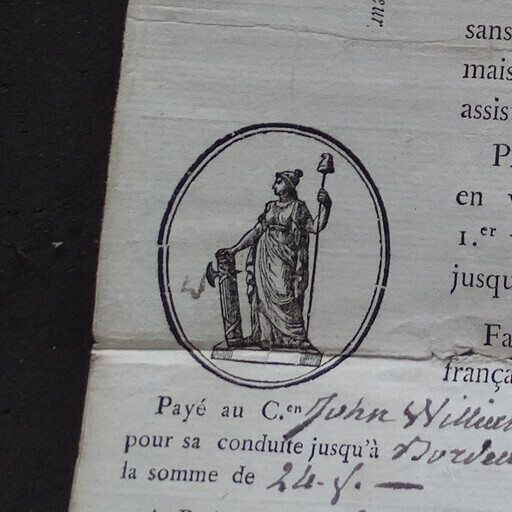 eur.
sans
mais
assis
en
1.er
jusqu
Fa
frança
Payé au C.en John William
pour sa conduite jusqu'à Bordeau
la somme de 24-